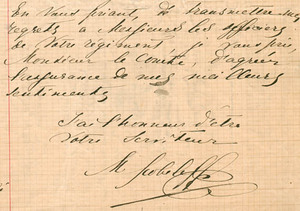 En vous priant, de transmettre mes
regrets a Messieurs les officiers
de Votre regiment, je vous prie,
Monsieur le Comte, d'agreer
l'assurance de mes meilleurs
sentiments
J'ai l'honneur d'être
Votre Serviteur
M. Skobeleff